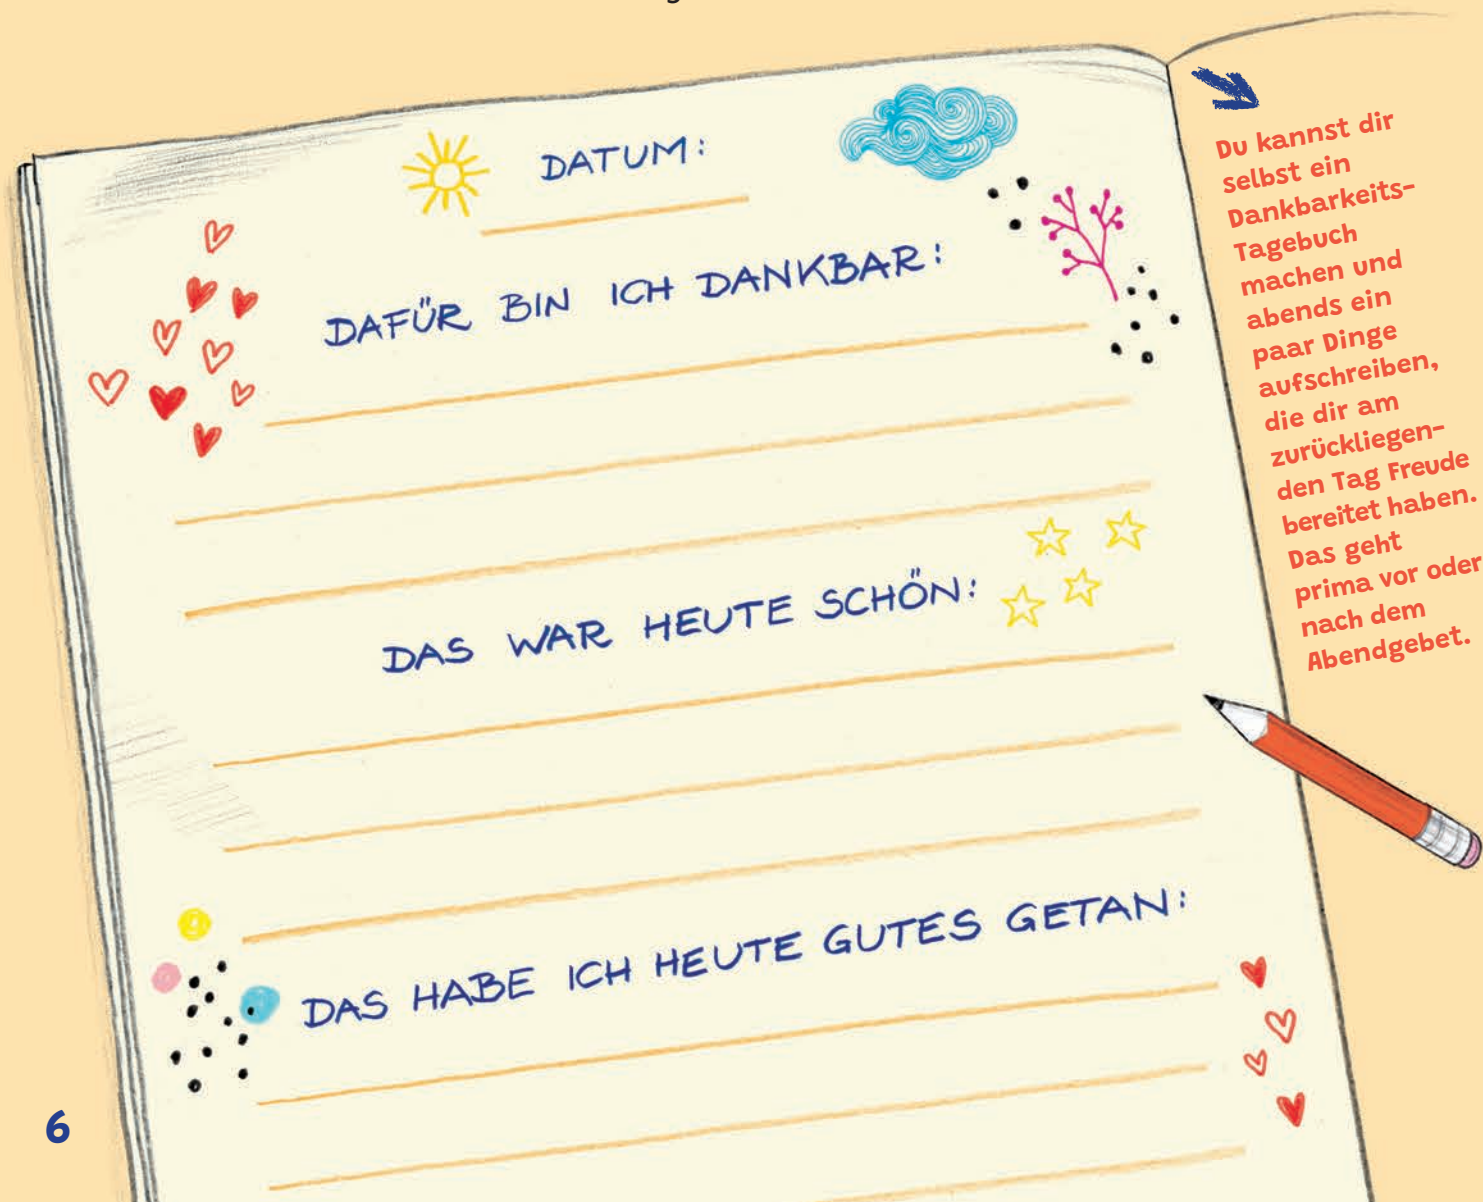 DATUM:
DAFÜR BIN ICH DANKBAR:
DAS WAR HEUTE SCHÖN:
DAS HABE ICH HEUTE GUTES GETAN:
Du kannst dir
selbst ein
Dankbarkeits-
Tagebuch
machen und
abends ein
paar Dinge
aufschreiben,
die dir am
zurückliegen-
den Tag Freude
bereitet haben.
Das geht
prima vor oder
nach dem
Abendgebet.
6